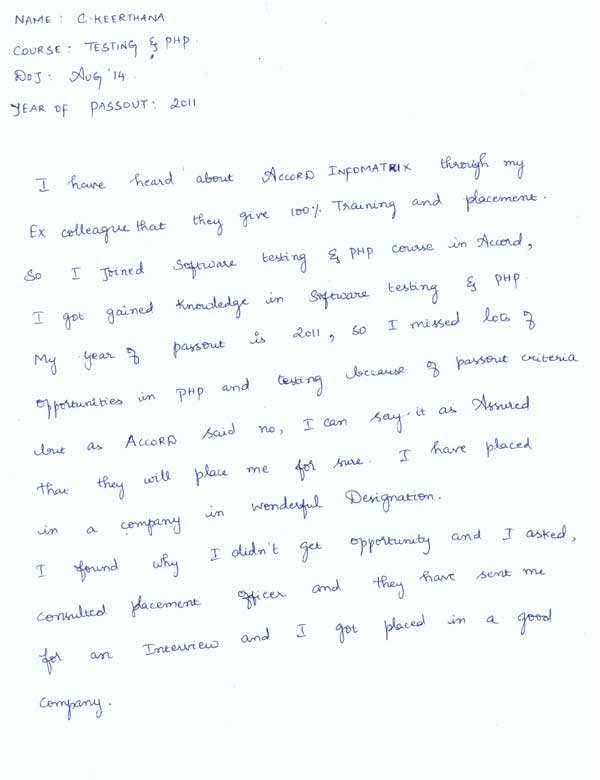 NAME : C.KEERTHANA
COURSE : TESTING & PHP.
DOJ : AUG '14.
YEAR OF PASSOUT : 2011
I have heard about ACCORD INFOMATRIX through my
Ex colleague that they give 100% Training and placement.
So I Joined Software testing & PHP course in Accord,
I got gained knowledge in Software testing & PHP.
My year of passout is 2011, so I missed lots of
opportunities in PHP and testing because of passout criteria
but as ACCORD said no, I can say it as Assured
that they will place me for sure. I have placed
in a company in wonderful Designation.
I found why I didn't get opportunity and I asked,
consulted placement officer and they have sent me
for an Interview and I got placed in a good
company.